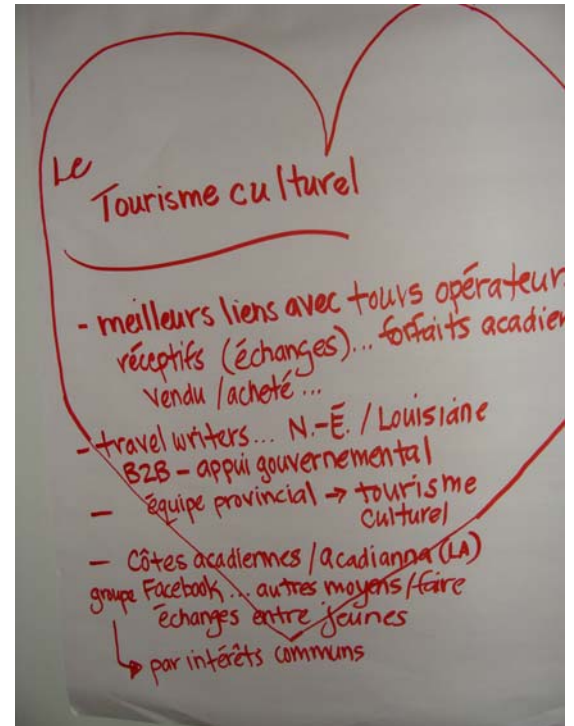 Le
Tourisme culturel
- meilleurs liens avec tours opérateurs
réceptifs (échanges)... forfaits acadien
vendu/acheté...
- travel writers... N.-É./Louisiane
B2B - appui gouvernemental
- équipe provincial → tourisme
culturel
- Côtes acadiennes/acadianna (LA)
groupe Facebook... autres moyens/faire
échanges entre jeunes
↳ par intérêts communs